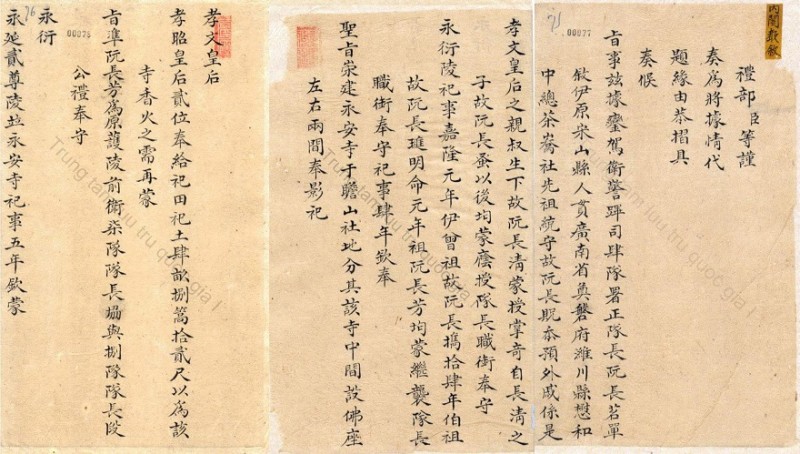 內閣敬叙
.00077
禮部臣等謹
奏爲將據情代
題緣由恭摺具
奏候
旨事茲據鑾駕衛警蹕司肆隊署正隊長阮長若單
叙伊原宋山縣人貫廣南省奠磐府濰川縣懋和
中總茶嶠社先祖統守故阮長貺忝預外戚係是
孝文皇后之親叔生下故阮長淸蒙授掌奇自長淸之
子故阮長蚤以後均蒙蔭授隊長職銜奉守
永衍陵祀事嘉隆元年伊曾祖故阮長撝拾肆年伯祖
故阮長璡明命元年祖阮長芳均蒙繼襲隊長
職銜奉守祀事肆年欽奉
聖旨崇建永安寺于瞻山社地分其該寺中間設佛座
左右兩間奉影祀
76
00076
孝文皇后
孝昭皇后貳位奉給祀田祀土肆畝捌篙拾貳尺以爲該
寺香火之需再蒙
旨準阮長芳爲原護陵前衛柒隊隊長撝與捌隊隊長段
公禮奉守
永衍
永延貳尊陵並永安寺祀事五年欽蒙
Trung tâm lưu trữ quốc gia I
Trung tâm lưu trữ quốc gia I
Trung tâm lưu trữ quốc gia I